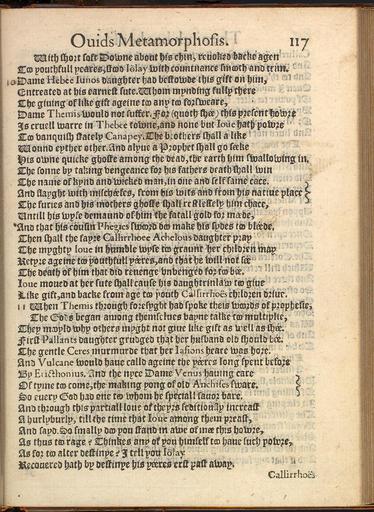 Ouids Metamorphosis. 117
With short soft Downe about his chin, reuoked backe agen
To youthfull yeares, stwd Iölay with countnance smwth and trim.
10 Dame Hebee Iunos daughter had bestowde this gift on him,
Entreated at his earnest sute. Whom mynding fully there
The giuing of like gift ageine tw any tw forsweare,
Dame Themis would not suffer. For (quoth shæ) this present howre
Is cruell warre in Thebee towne, and none but Ioue hath powre
Tw vanquish stately Canapey. The brothers shall a like
Wound eyther other. And alyue a Prophet shall go sæke
His owne quicke ghoste among the dead, the earth him swallowing in.
The sonne by taking vengeance for his fathers death shall win
The name of kynd and wicked man, in one and self same cace.
And flayght with mischæfes, from his wits and from his natiue place
The furies and his mothers ghoste shall restlessely him chace,
Untill his wyfe demaund of him the fatall gold for mæde,
*And that his cousin Phegies sword do make his sydes tw blæde.
Then shall the fayre Callirrhoee Achelous daughter pray
The myghty Ioue in humble wyse tw graunt her children may
Retyre ageine tw youthfull yæres, and that he will not sæ
The death of him that did reuenge vnvenged for tw bæ.
Ioue moued at her sute shall cause his daughtrinlaw tw giue
Like gift, and backe from age tw youth Callirrhoës children driue.
11 When Themis through foresyght had spoke theis words of prophesie,
The Gods began among themselues vayne talke tw multiplie,
They mooyld why others myght not giue like gift as well as shæ.
First Pallants daughter grudged that her husband old should bæ.
The gentle Ceres murmurde that her Iasions heare was hore.
And Vulcane would haue calld ageine the yæres long spent before
By Ericthonius. And the nyce Dame Venus hauing care
Of tyme tw come, the making yong of old Anchises sware.
So euery God had one tw whom he speciall fauor bare.
And through this partiall loue of theyrs seditiously increast
A hurlyburly, till the time that Ioue among them preast,
And sayd. So smally do you stand in awe of me this howre,
As thus tw rage? Thinkes any of you himself tw haue such powre,
As for tw alter destinye? I tell you Iölay
Recouered hath by destinye his yæres erst past away.
Callirrhoës